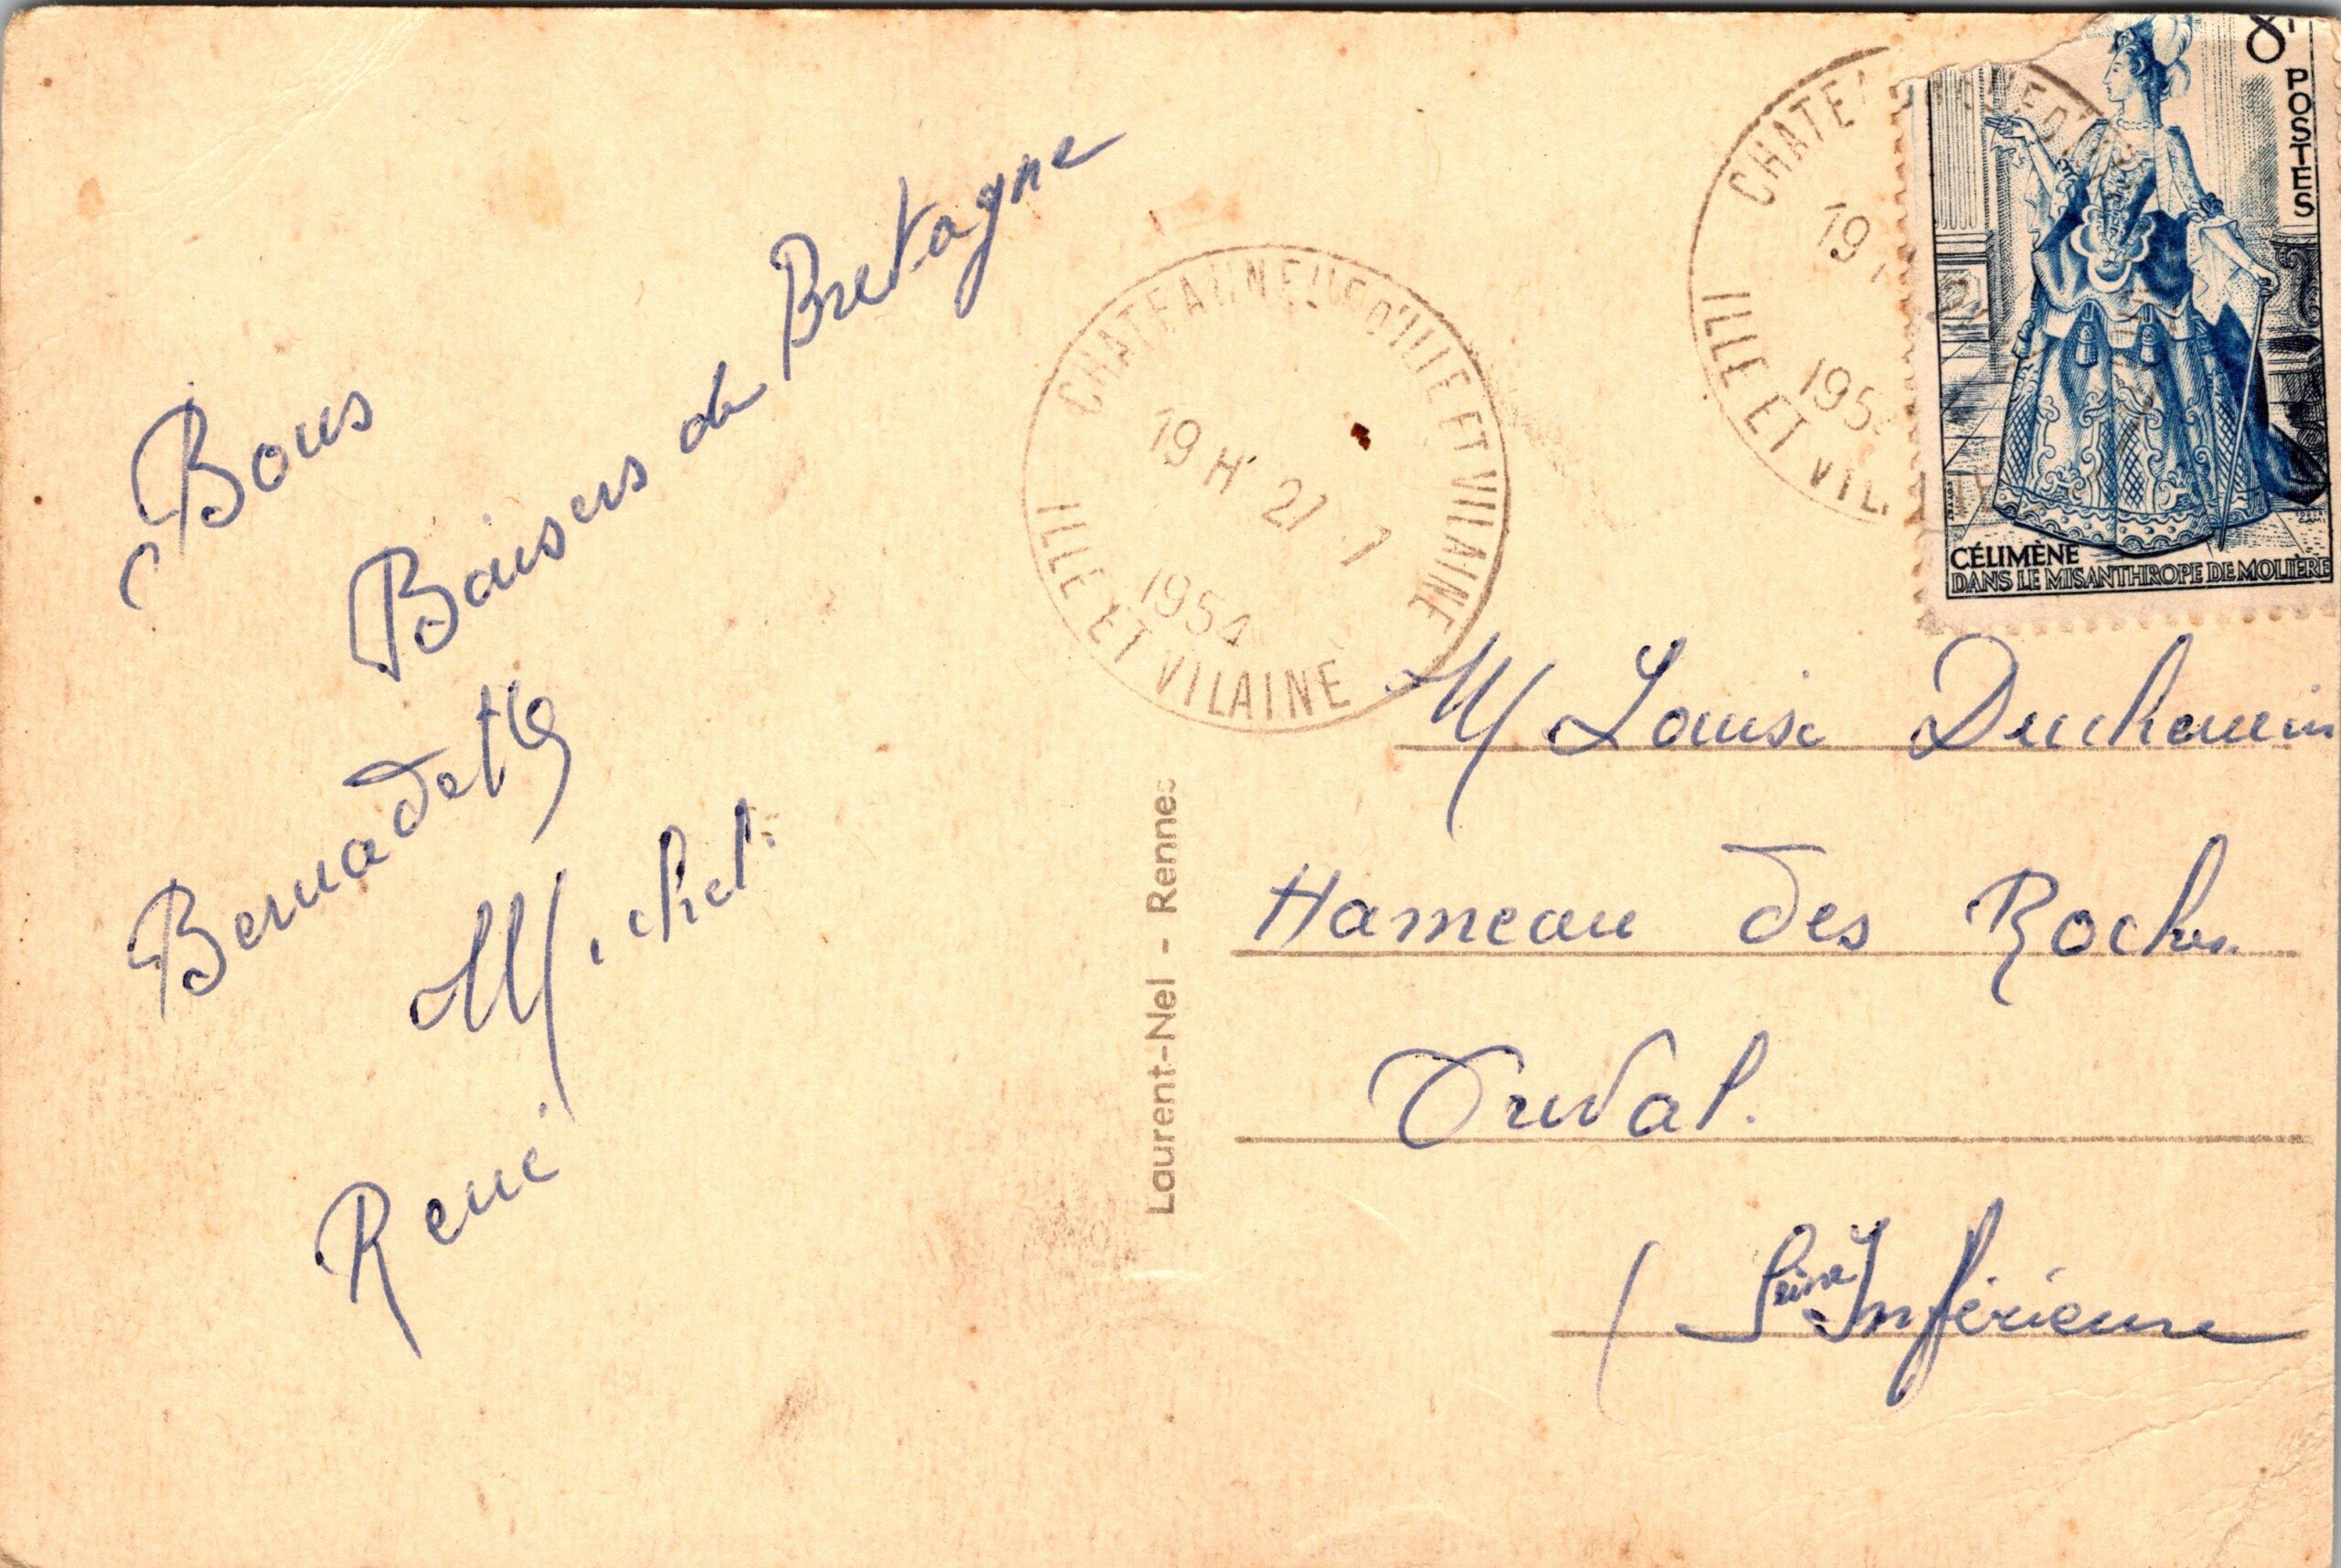 Bons
Baisers de Bretagne
Bernadette
Michel
René
CHATEAUNEUF D'ILLE ET VILAINE
19 H 21 - 7
1954
ILLE ET VILAINE
Laurent-Nel - Rennes
CHATEA
19
195
ILLE ET VIL
8F
POSTES
CÉLIMÈNE
DANS LE MISANTHROPE DE MOLIÈRE
M Louise Duchemin
Hameau des Roches
Orival.
(Seine Inférieure